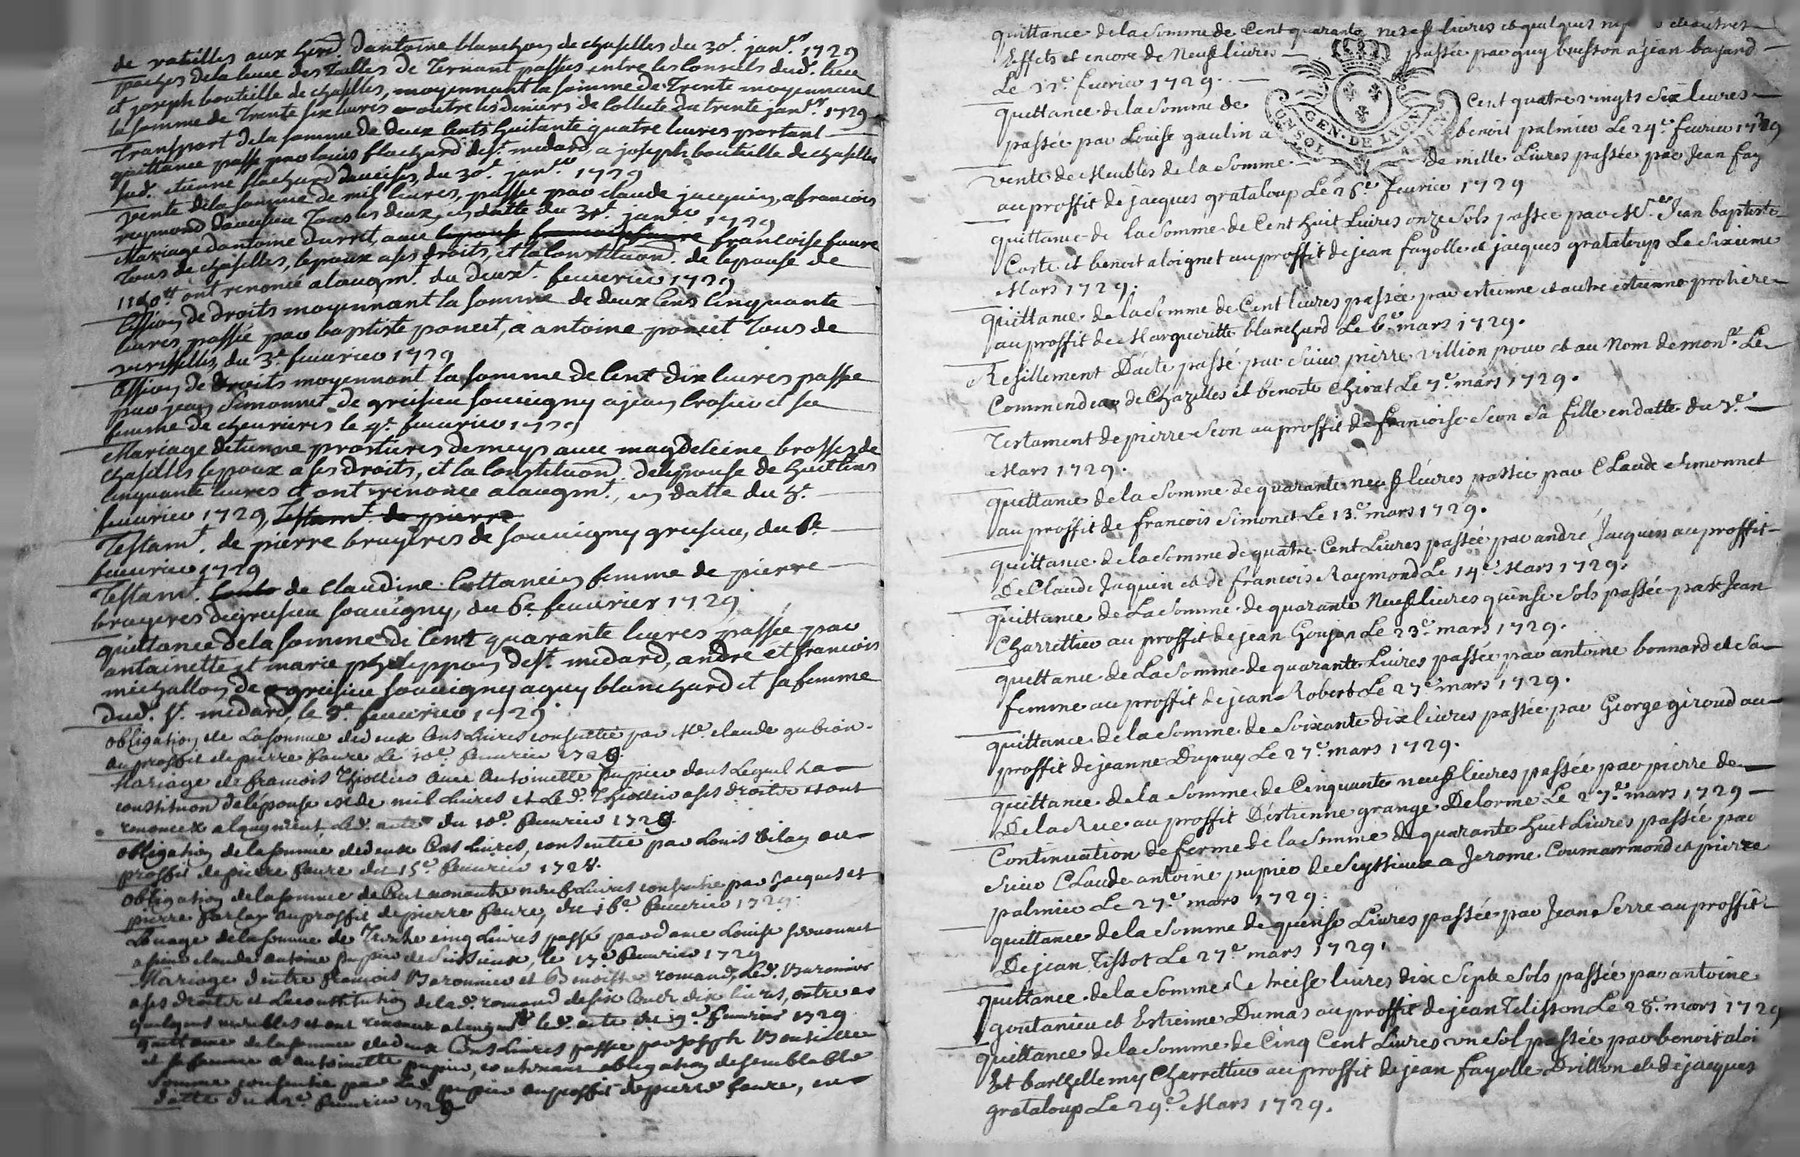 de vateilles aux hered. dantoine blanchon de chaselles du 30e. janr. 1729
passée de la leuee des Tailles de Ternant passées entre les Consuls dud. lieu
et joseph bouteille de chaselles, moyennant la somme de Trente moyennent
la somme de Trente six liures outre les deniers de Collecte du trente janr. 1729
Transport de la somme de deux Cents huitante quatre liures portant
quittance passé par louis flachard de st. medard, a joseph bouteille de chaselles
sud. etienne flachard du 30e. janr. 1729
Vente de la somme de mil liures, passée par claude jacquin, a francois
reymond Tous les deux, en datte du 31e. janr. 1729
Mariage dantoine durret, auec francoise faure
Tous de chaselles, lepoux a ses droits, et la Constituon. de lepouse de
110tt ont renoncé a laugmt. du deuxe. feuurier 1729
Cession de droits moyennant la somme de deux Cens Cinquante
liures passée par baptiste poncet, a antoine poncet Tous de
virisselles, du 3e feuurier 1729
Cession de droits moyennant la somme de Cent dix liures passée
par jean Simonnet de gresieu souuigny a jean Crosier et sa
femme de cheurieres le 4e. feuurier 1729
Mariage detienne protieres de meys auec magdeleine brosses de
chaselles lepoux a ses droits, et la Constituon. de lepouse de huit Cens
Cinquante liures et ont renoncé a laugmt., en datte du 5e.
feuurier 1729 Testamt. de pierre
Testamt. de pierre bruyeres de souuigny gresieu, du 6e.
feuurier 1729
Testamt. de claudine Coltancien femme de pierre
bruyeres de gresieu souuigny, du 6e. feuurier 1729
quittance de la somme de Cent quarante liures passée par
antoinette et marie phelippon de st. midard, andré et francois
michallon de gresieu souuigny a guy blanchard et sa femme
dud. st. midard, le 8e. feuurier 1729
obligation de la somme de deux Cens Liures consentie par Me. claude gubian
au proffit de pierre faure le 10e. feuurier 1729
Mariage de francois Thiollier auec Antoinette pupier dans Lequel la
constituon de lépouse est de mil Liures et Led. Thiollier a ses droits et ont
renoncé a laugment Led. acte du 10e. feuurier 1729
obligation de la somme de deux Cens Liures, consentie par Louis Vilay au
proffit de pierre faure du 15e. feuurier 1729.
obligation de la somme de Cent nonante neuf Liures consentie par Jacques et
pierre farlay au proffit de pierre faure, du 16e. feuurier 1729.
Louage de la somme de Trente cinq Liures passé par dame Louise
a sieur claude antoine pupier de sissieux, le 17e feuurier 1729
Mariage d'entre francois Baronnier et Benoiste romand, Led. Baronnier
a ses droits et La constitution de la d. romand de six Cens dix liures, outre
quelques meubles et ont renoncé a laugmt led. acte du 19e. feuurier 1729
quittance de la somme de deux Cens Liures passée par Joseph Bouteille
et sa femme a antoinette pupier, contenant obligation de semblable
somme consentie par Lad. pupier au proffit de pierre faure, en
datte du feuurier 1729
quittance de la somme de Cent quarante neuf livres et quelques et autres
Effets et encore de Neuf livres passée par guy buisson a jean bayard
Le 22e. fevrier 1729.
quittance de la somme de Cent quatre vingts six livres
passée par Louise gaulin a benoit palmier Le 24e. fevrier 1729
vente de Meubles de la somme de mille Livres passée par Jean fay
au proffit de jacques grataloup Le 26e. fevrier 1729
quittance de la somme de Cent huit Livres onze sols passée par Mr. Jean baptiste
Coste et benoit aloignet au proffit de jean fayolle et jacques grataloup Le sixieme
Mars 1729.
quittance de la somme de Cent livres passée par estienne et autre estienne protiere
au proffit de Margueritte blanchard Le 6e. mars 1729.
Resillement Dacte passé par sieur pierre villion pour et au Nom de monsr. Le
Commendeur de Chazelles et benoite Chirat Le 7e. mars 1729.
Testament de pierre Seon au proffit de francoise Seon sa fille en datte du 7e.
Mars 1729.
quittance de la somme de quarante neuf livres passée par Claude Simonnet
au proffit de francois Simonet Le 13e. mars 1729.
quittance de la somme de quatre Cent Livres passée par andré Jacquin au proffit
De Claude Jaquin et de francois Raymond Le 14e. Mars 1729.
quittance de La somme de quarante Neuf livres quinse sols passée par Jean
Charrettier au proffit de jean Goujon Le 23e. mars 1729.
quettance de La somme de quarante Livres passée par antoine bonnard et sa
femme au proffit de jean Robert Le 27e. mars 1729.
quittance de la somme de soixante dix livres passée par George giroud au
proffit de jeanne Dupuy Le 27e. mars 1729.
quittance de la somme de Cinquante neuf livres passée par pierre de
De la Rue au proffit Déstienne grange Delorme Le 27e. mars 1729
Continuation de ferme de la somme de quarante huit Livres passée par
sieur Claude antoine pupier de Seyttieux a Jerome Coumarmond et pierre
palmier Le 27e. mars 1729.
quittance de la somme de quinse Livres passée par Jean Serre au proffit
De jean Tissot Le 27e. mars 1729.
quittance de la somme de treise livres dix sept sols passée par antoine
goutanier et Estienne Dumas au proffit de jean Telisson Le 28e. mars 1729
quittance de la somme de Cinq Cent Livres un sol passée par benoit aloi
Et barthellemy Charrettier au proffit de jean fayolle Drillon et de jacques
grataloup Le 29e. Mars 1729.
GEN. DE LYON